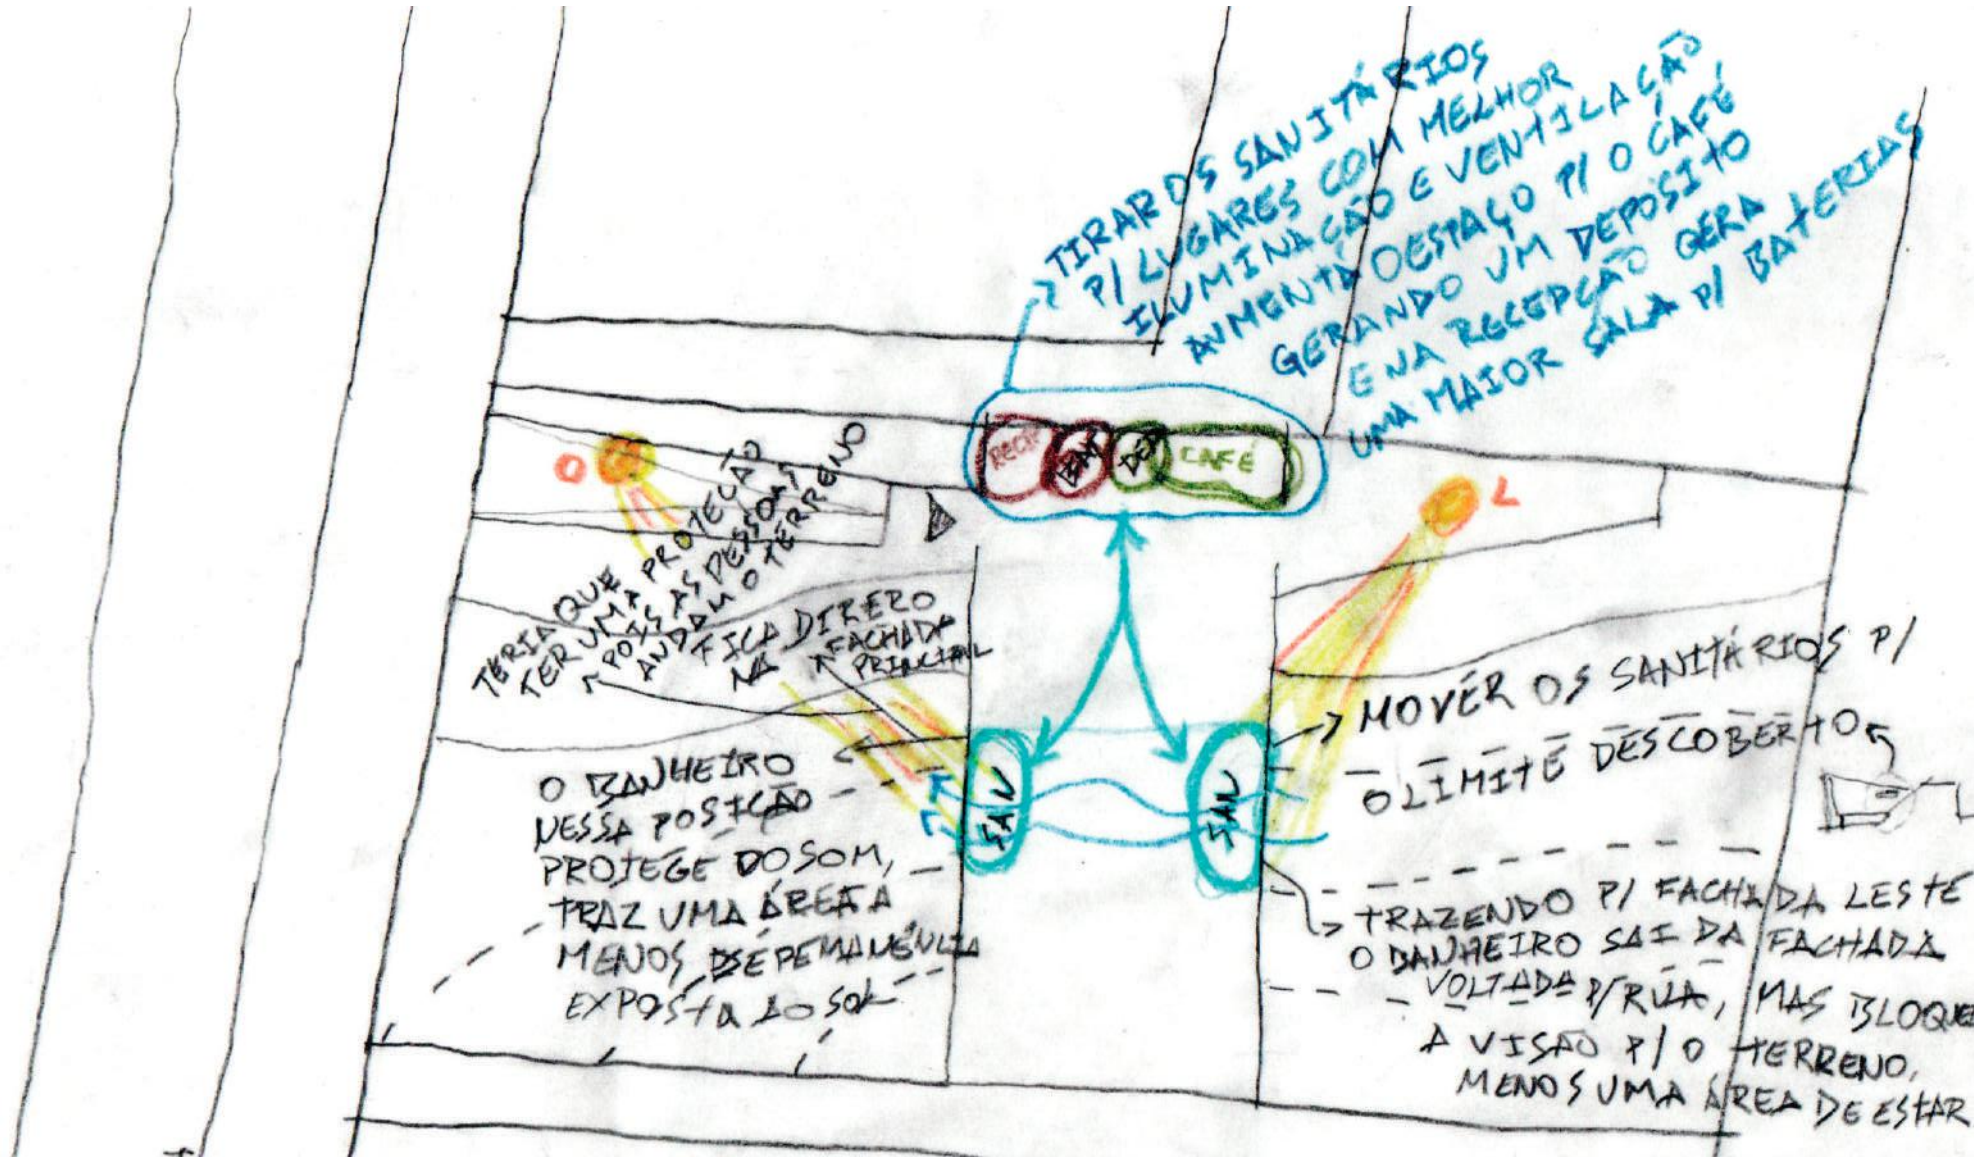 TIRAR OS SANITÁRIOS
P/ LUGARES COM MELHOR
ILUMINAÇÃO E VENTILAÇÃO
AUMENTA O ESPAÇO P/ O CAFÉ
GERANDO UM DEPÓSITO
E NA RECEPÇÃO GERA
UMA MAIOR SALA P/ BATERIAS
RECP
BAT
DEP
CAFÉ
O
L
TERIA QUE
TER UMA PROTEÇÃO
POIS AS PESSOAS
ANDAM O TERRENO
FICA DIRERO
NA FACHADA
PRINCIPAL
SAN
SAN
O BANHEIRO
NESSA POSIÇÃO
PROTEGE DO SOM,
TRAZ UMA ÁREA A
MENOS DE PEMANÊNCIA
EXPOSTA AO SOL
MOVER OS SANITÁRIOS P/
O LIMITE DESCOBERTO
TRAZENDO P/ FACHADA LESTE
O BANHEIRO SAI DA FACHADA
VOLTADA P/ RUA, MAS BLOQUE
A VISÃO P/ O TERRENO,
MENOS UMA ÁREA DE ESTAR